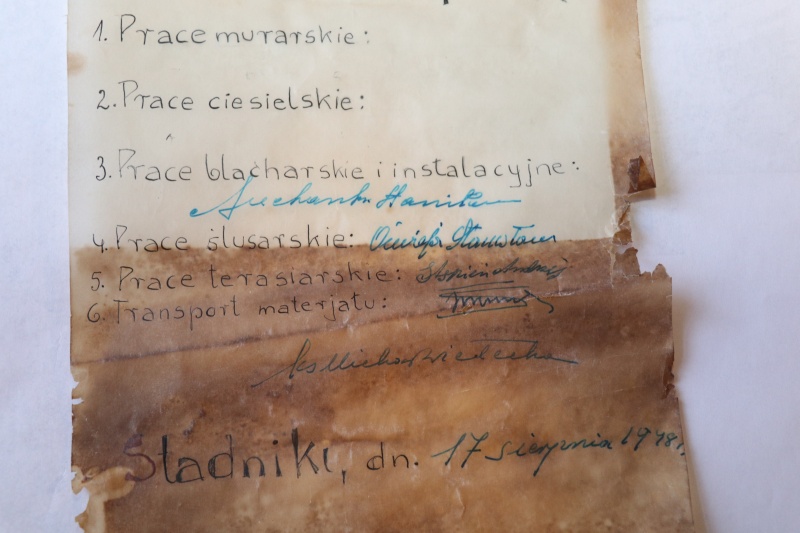 1. Prace murarskie:
2. Prace ciesielskie:
3. Prace blacharskie i instalacyjne:
4. Prace ślusarskie: Stanisław
5. Prace terasiarskie: Andrzej
6. Transport materjału:
Stadniki, dn. 17 sierpnia 1948 r.